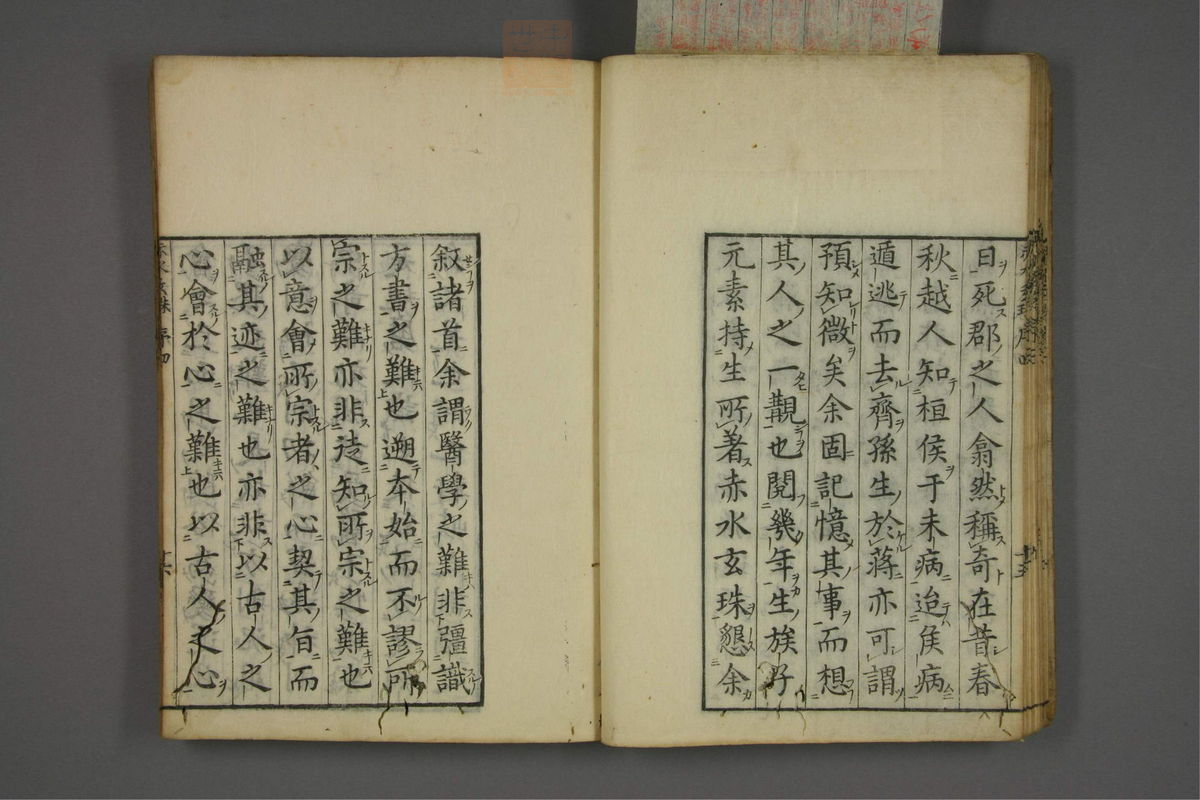 日死郡之人翕然稱奇在昔春
秋越人知桓侯于未病迨侯病
遁逃而去齊孫生於蔣亦可謂
預知微矣余固記憶其事而想
其人之一覯也閱幾年生族子
元素持生所著赤水玄珠懇余
敍諸首余謂醫學之難非彊識
方書之難也遡本始而不謬所
宗之難亦非徒知所宗之難也
以意會所宗者之心契其旨而
融其迹之難也亦非以古人之
心會於心之難也以古人之心